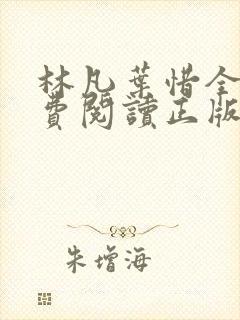 林凡葉惜全
費閱讀正版
朱增海